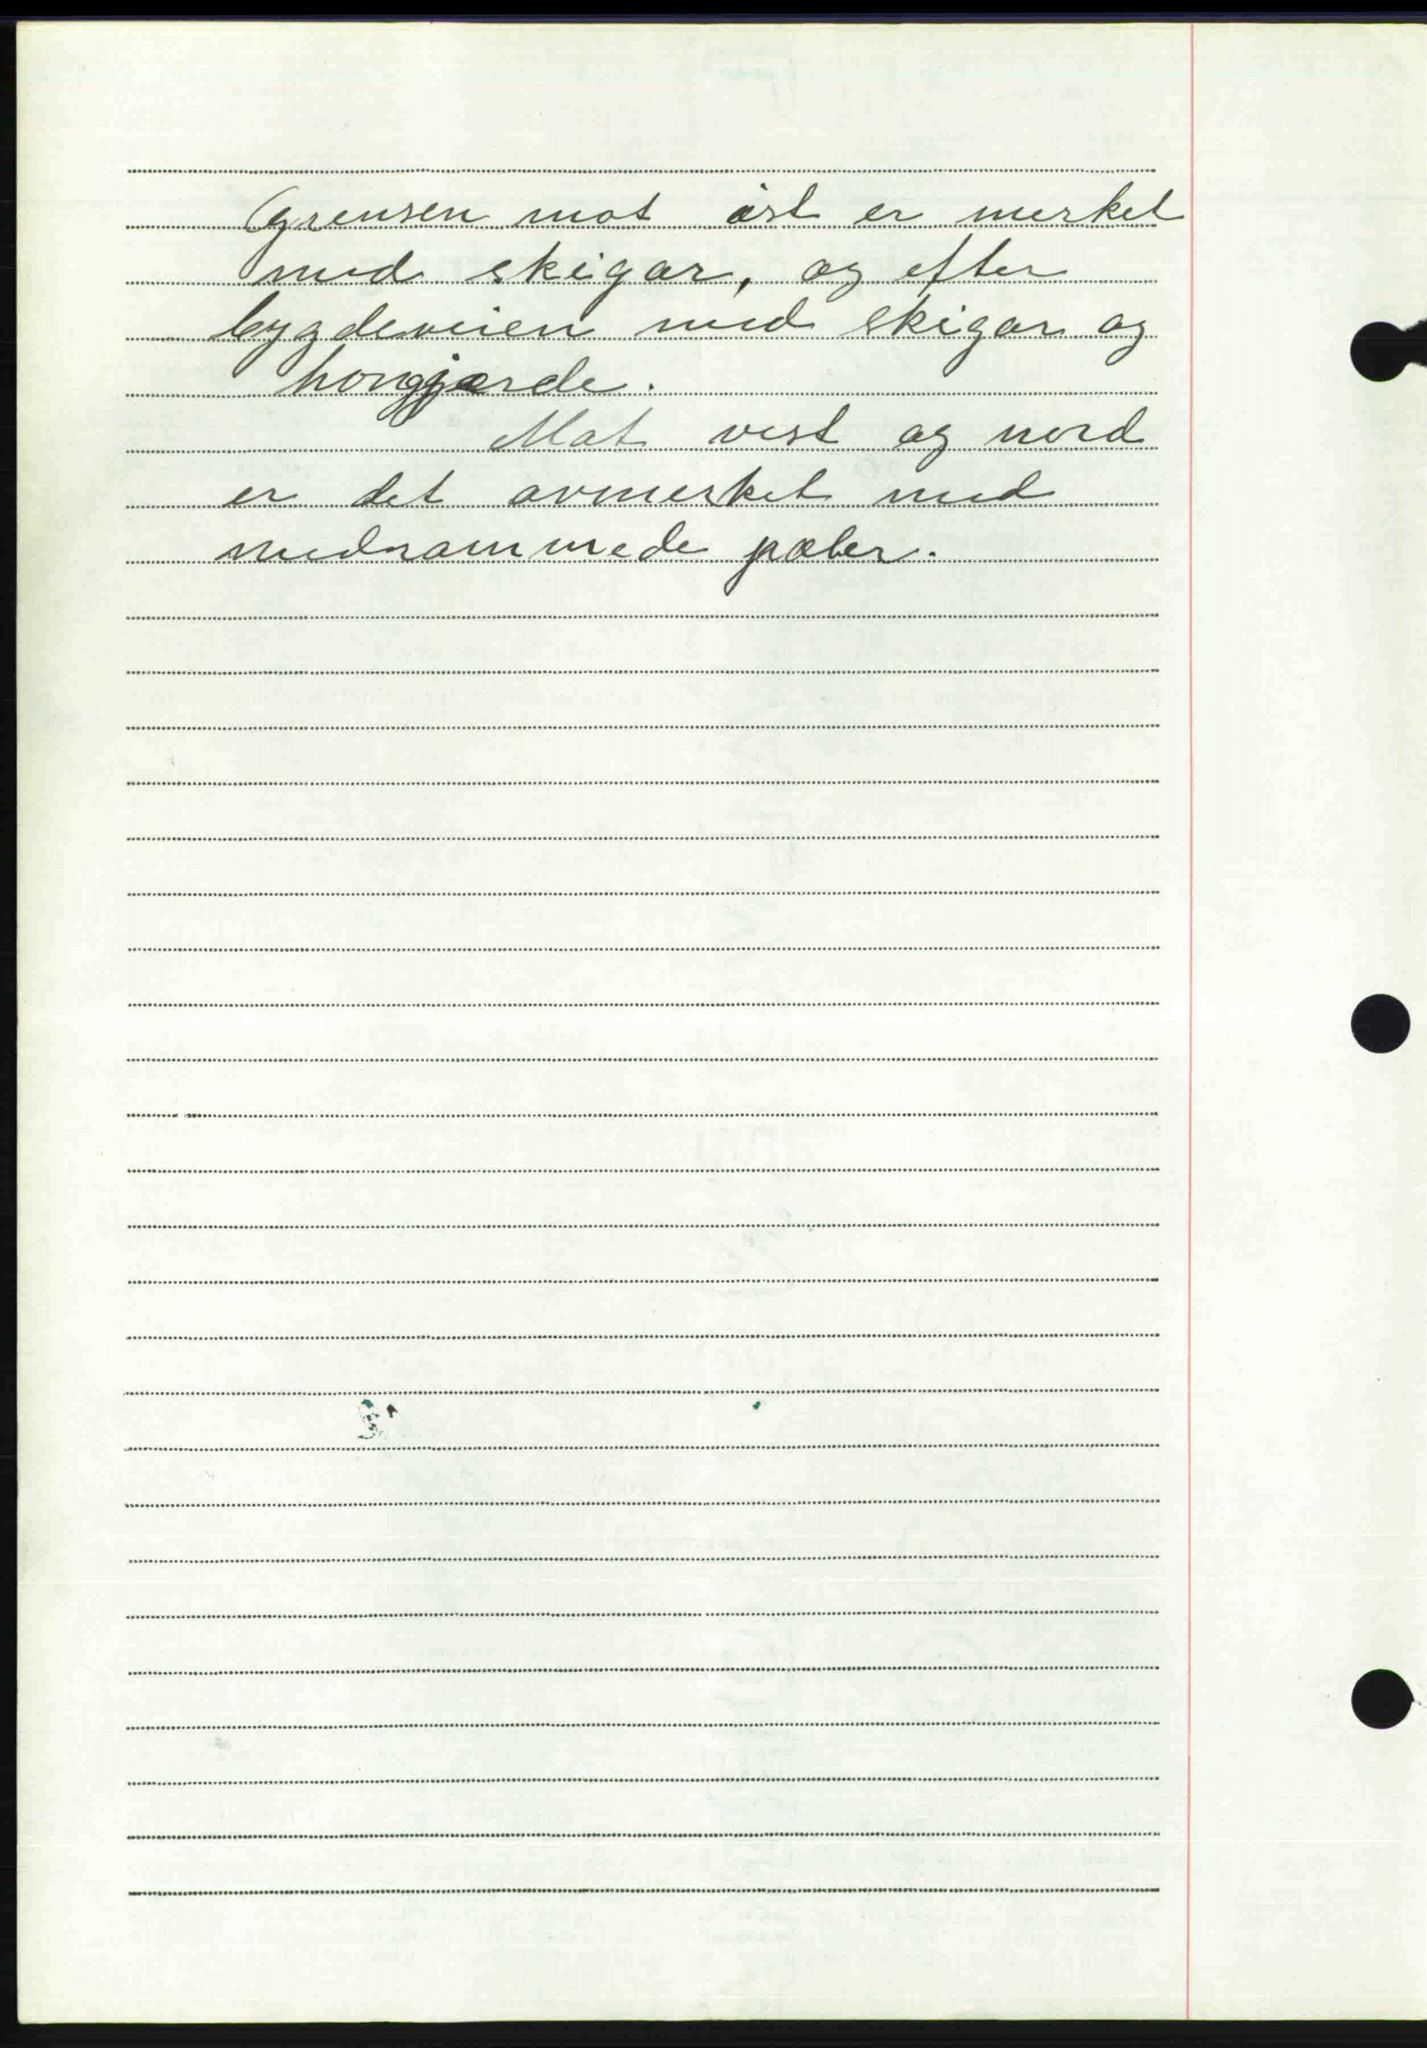 Grensen mot øst er merket
med skigar, og efter
bygdeveien med skigar og
honggjærde.
Mot vest og nord
er det avmerket med
nedrammede pæler.